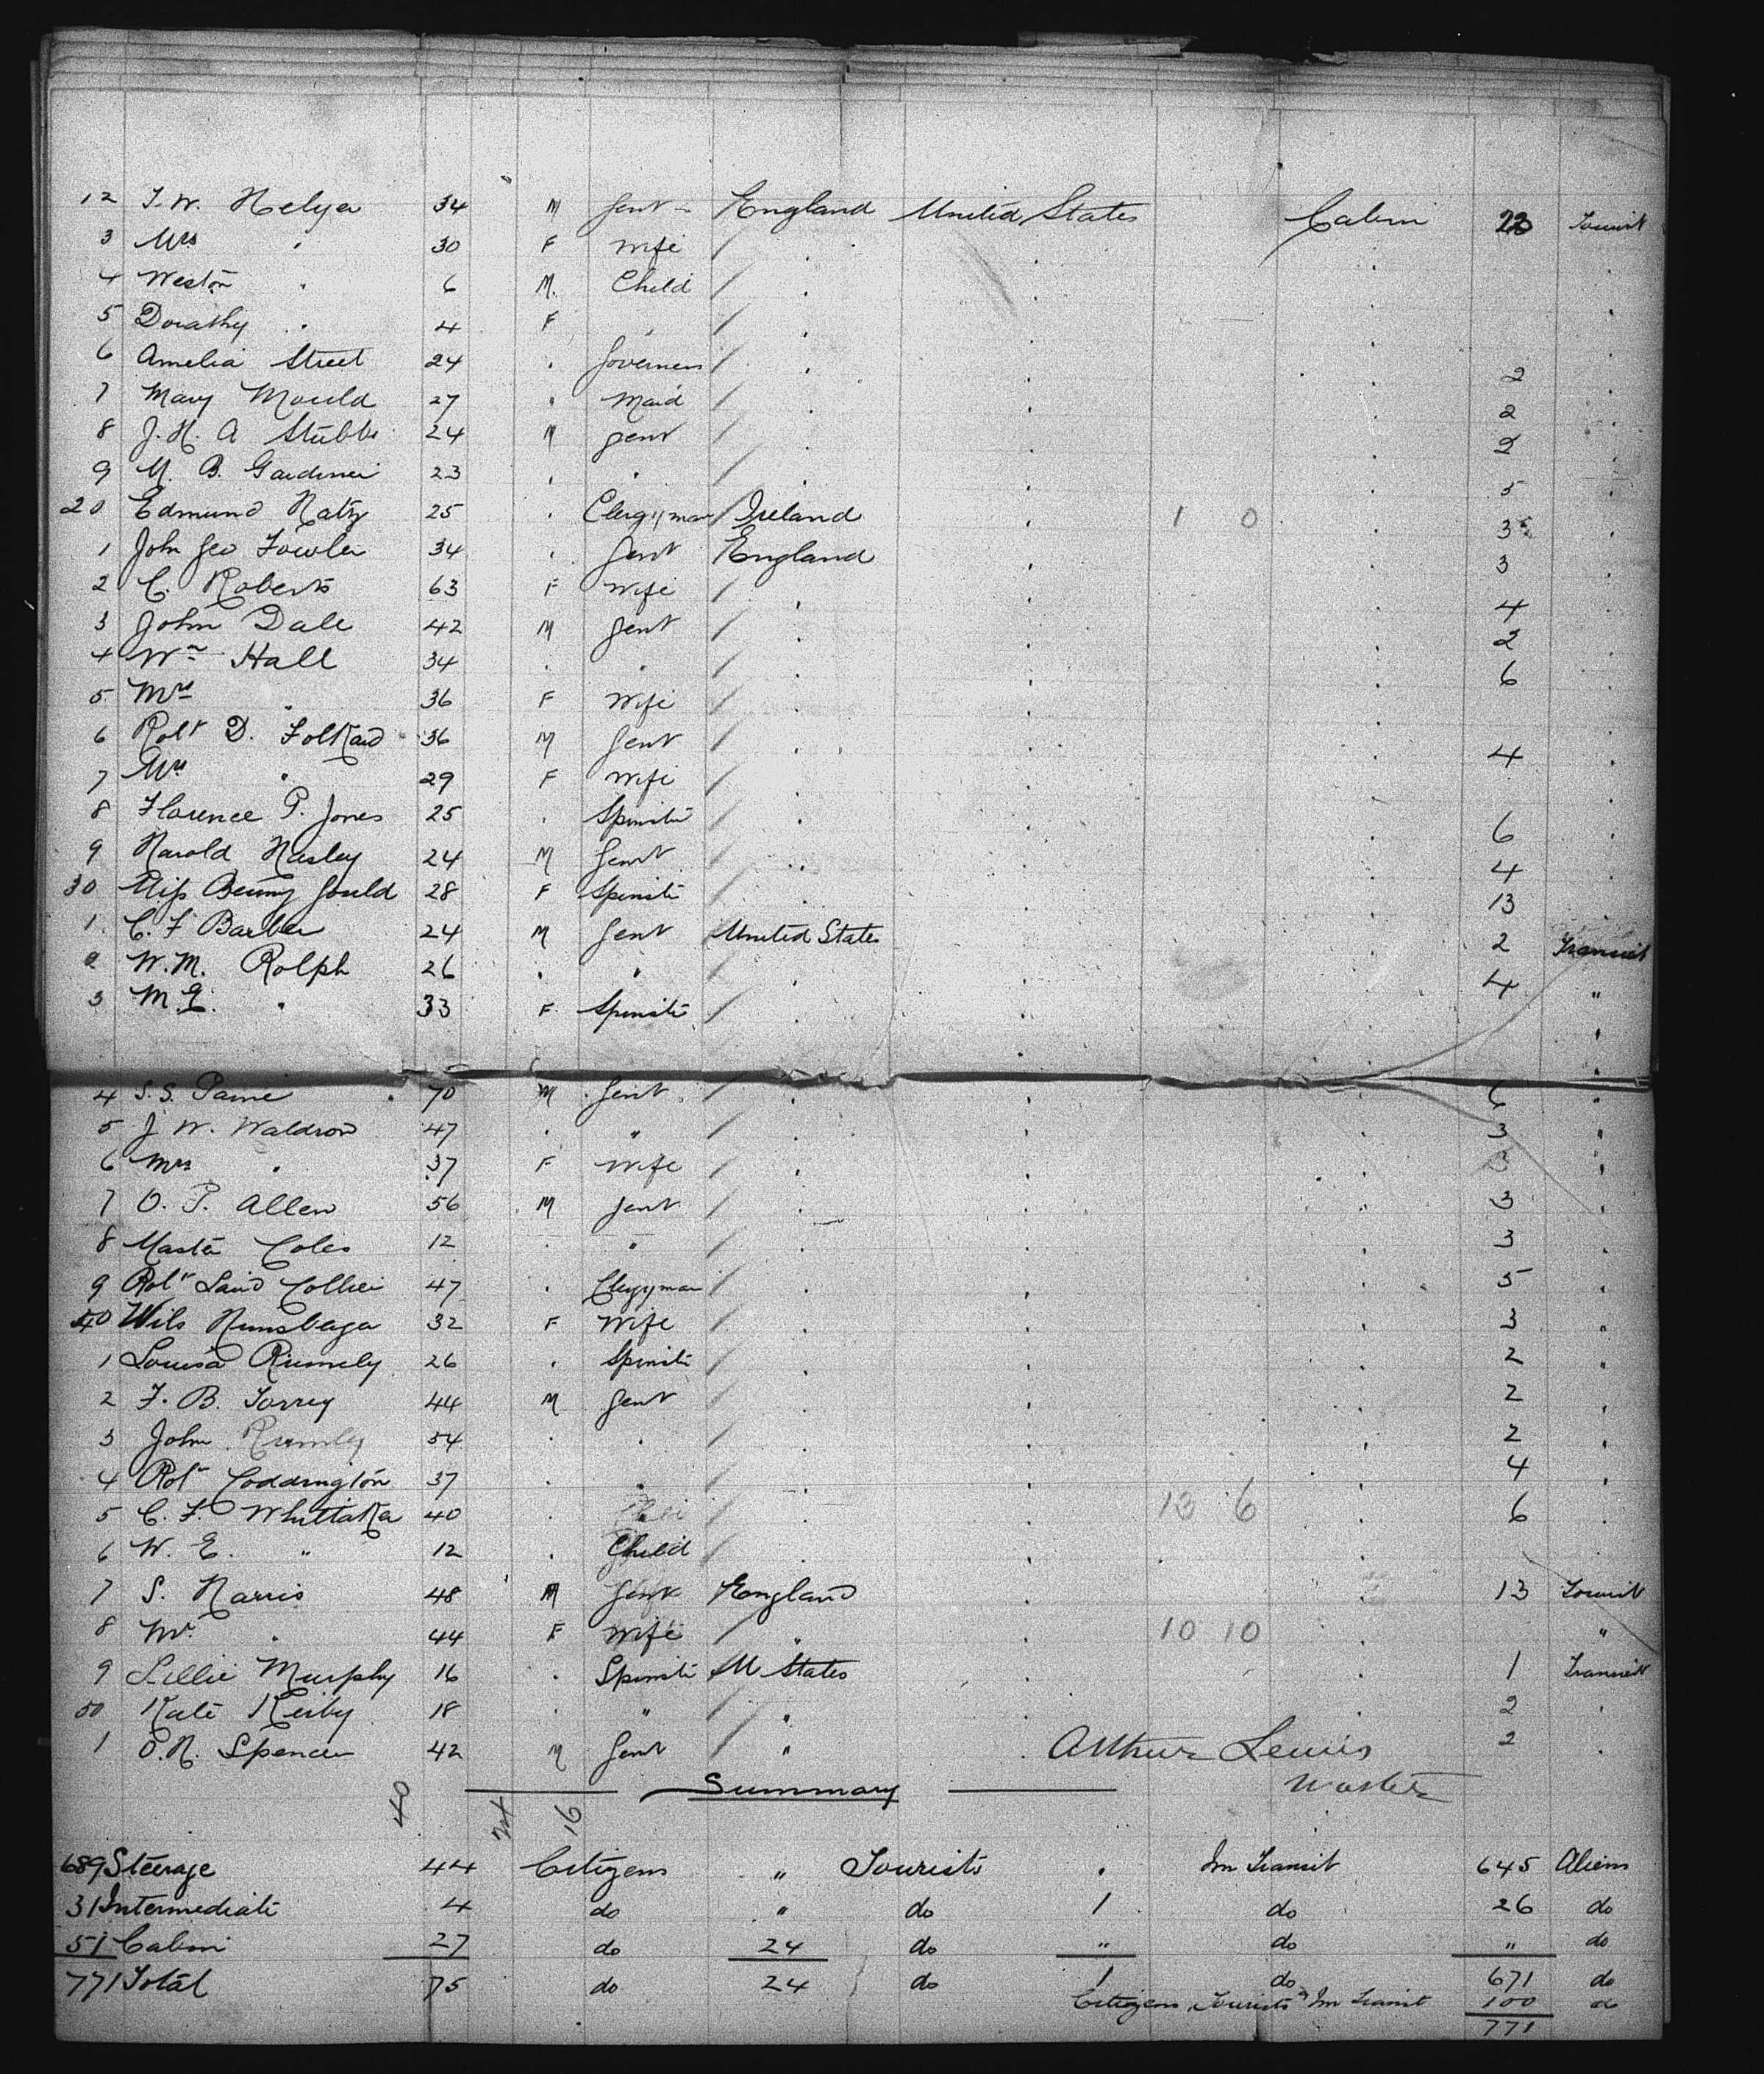 12 T. W. Helya 34 M Gent England United States Cabin 23 Tourist
3 Mrs " 30 F Wife
4 Weston " 6 M. Child
5 Dorathy " 4 F
6 Amelia Street 24 Governess 2
7 Mary Mould 27 Maid 2
8 J. H. A Stubbs 24 M gent 2
9 M. B. Gardiner 23 5
20 Edmund Haty 25 Clergyman Ireland 1 0 3
1 John Geo Fowler 34 Gent England 3
2 C. Roberts 63 F Wife 4
3 John Dale 42 M Gent 2
4 Wm Hall 34 6
5 Mrs " 36 F Wife
6 Robt D. Folkard 36 M Gent 4
7 Mrs " 29 F Wife
8 Florence P. Jones 25 Spinster 6
9 Harold Hasley 24 M Gent 4
30 Miss Gould 28 F Spinster 13
1 C. F Barber 24 M Gent United States 2 Transit
2 W. M. Rolph 26 " 4 "
3 M. E. " 33 F Spinster "
4 S. S. Paine 70 M Gent 6 "
5 J W. Waldron 47 " 3 "
6 Mrs " 37 F Wife 3
7 O. P. Allen 56 M Gent 3
8 Master Coles 12 " 3
9 Robt Laird Collier 47 Clergyman 5
40 Wils 32 F Wife 3 "
1 Louisa Rumely 26 Spinster 2 "
2 F. B. Torrey 44 M Gent 2
3 John Rumley 54 2
4 Robt Coddington 37 4
5 C. F. Whittaker 40 13 6 6
6 W. E. " 12 Child
7 S. Harris 48 M Gent England 13 Tourist
8 Mrs " 44 F Wife " 10 10 "
9 Lillie Murphy 16 Spinster U States 1 Transit
50 Kate Kerby 18 " " 2
1 O. H. Spencer 42 M Gent " 2
Arthur Lewis
Master
Summary
40 24 16
689 Steerage 44 Citizens " Tourists " In Transit 645 Aliens
31 Intermediate 4 do " do 1 do 26 do
51 Cabin 27 do 24 do " do " do
771 Total 75 do 24 do 1 do 671 do
Citizens, Tourists & In Transit 100 do
771